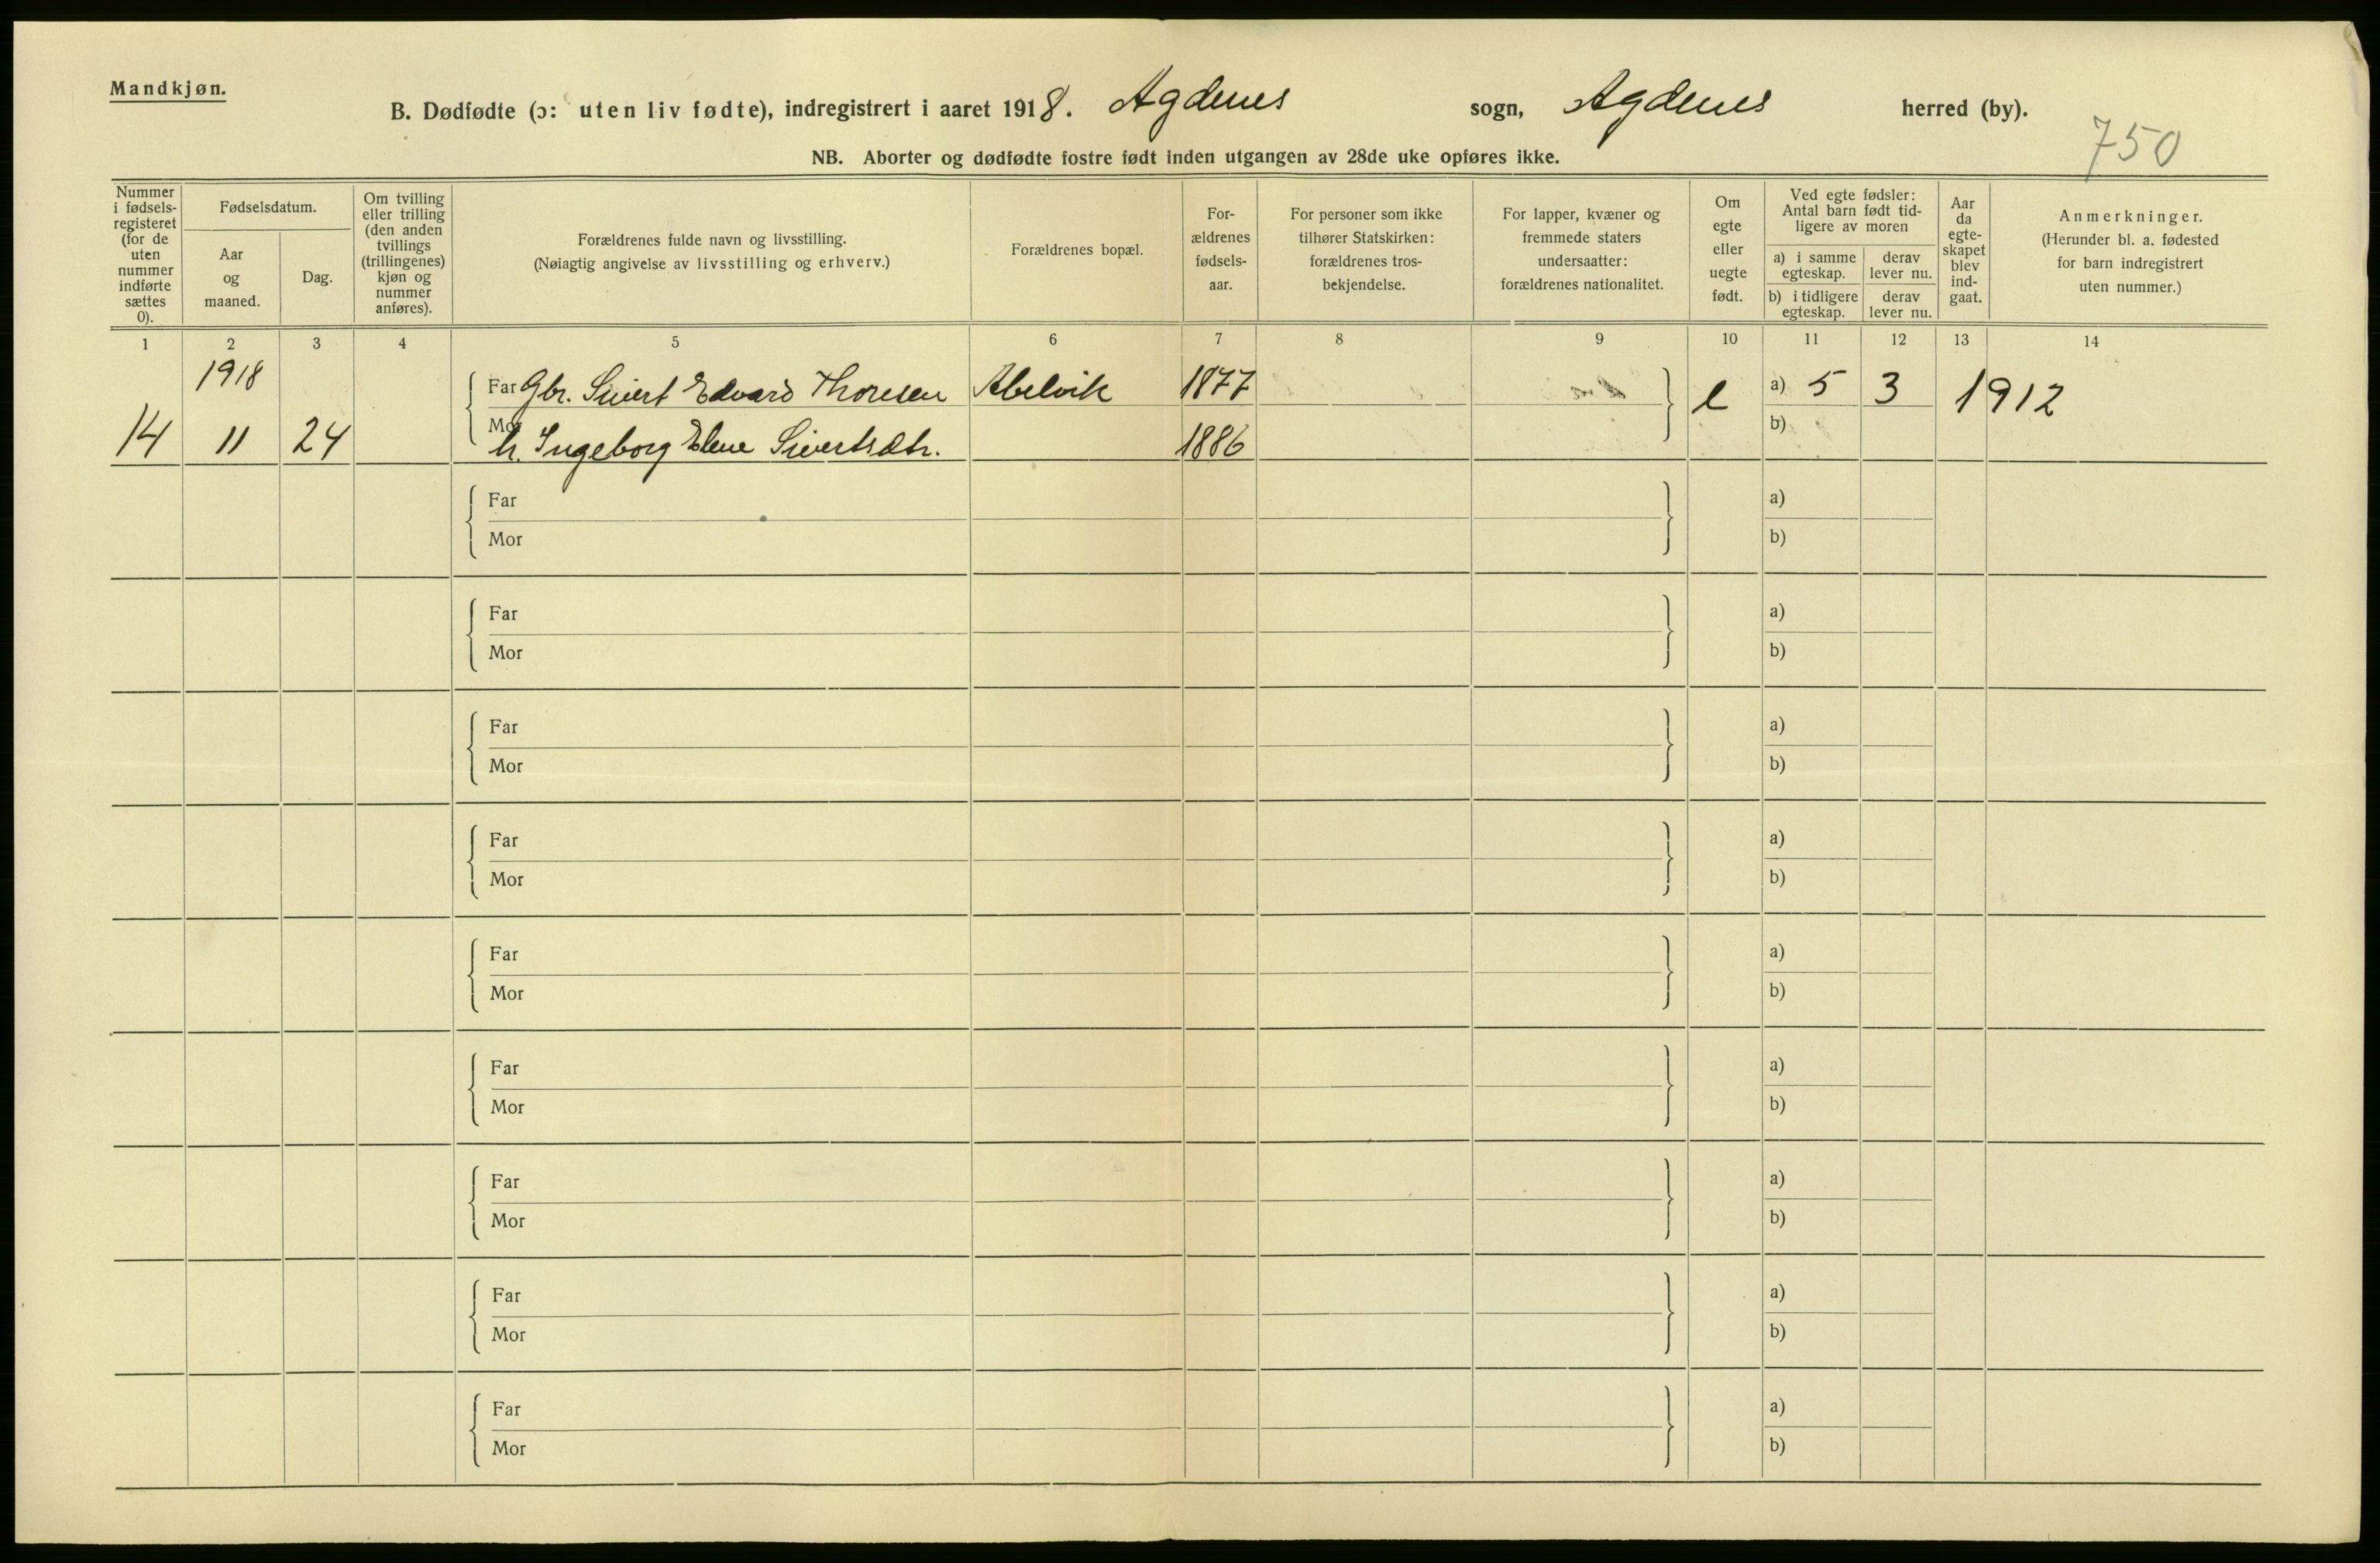 Mandkjøn.
B. Dødfødte (ɔ: uten liv fødte), indregistrert i aaret 1918. Agdenes sogn, Agdenes herred (by).
750
NB. Aborter og dødfødte fostre født inden utgangen av 28de uke opføres ikke.
Nummer i fødsels-registeret (for de uten nummer indførte sættes 0).
Fødselsdatum.
Aar og maaned.
Dag.
Om tvilling eller trilling (den anden tvillings (trillingenes) kjøn og nummer anføres).
Forældrenes fulde navn og livsstilling.
(Nøiagtig angivelse av livsstilling og erhverv.)
Forældrenes bopæl.
For-ældrenes fødsels-aar.
For personer som ikke tilhører Statskirken: forældrenes tros-bekjendelse.
For lapper, kvæner og fremmede staters undersaatter: forældrenes nationalitet.
Om egte eller uegte født.
Ved egte fødsler: Antal barn født tid-ligere av moren
a) i samme egteskap.
derav lever nu.
b) i tidligere egteskap.
derav lever nu.
Aar da egte-skapet blev ind-gaat.
Anmerkninger.
(Herunder bl. a. fødested for barn indregistrert uten nummer.)
1 2 3 4 5 6 7 8 9 10 11 12 13 14
1918
Far Gbr. Sivert Edvard Thoresen Abelvik 1877 e a) 5 3 1912
14 11 24 Mor h. Ingeborg Elene Sivertsdtr. 1886 b)
Far a)
Mor b)
Far a)
Mor b)
Far a)
Mor b)
Far a)
Mor b)
Far a)
Mor b)
Far a)
Mor b)
Far a)
Mor b)
Far a)
Mor b)
Far a)
Mor b)